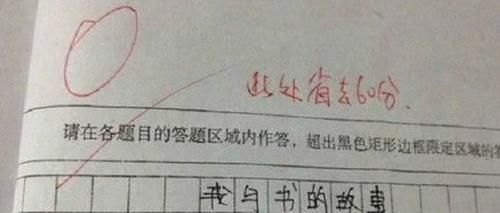 此处省去60分.
请在各题目的答题区域内作答，超出黑色矩形边框限定区域的答
我与书的故事